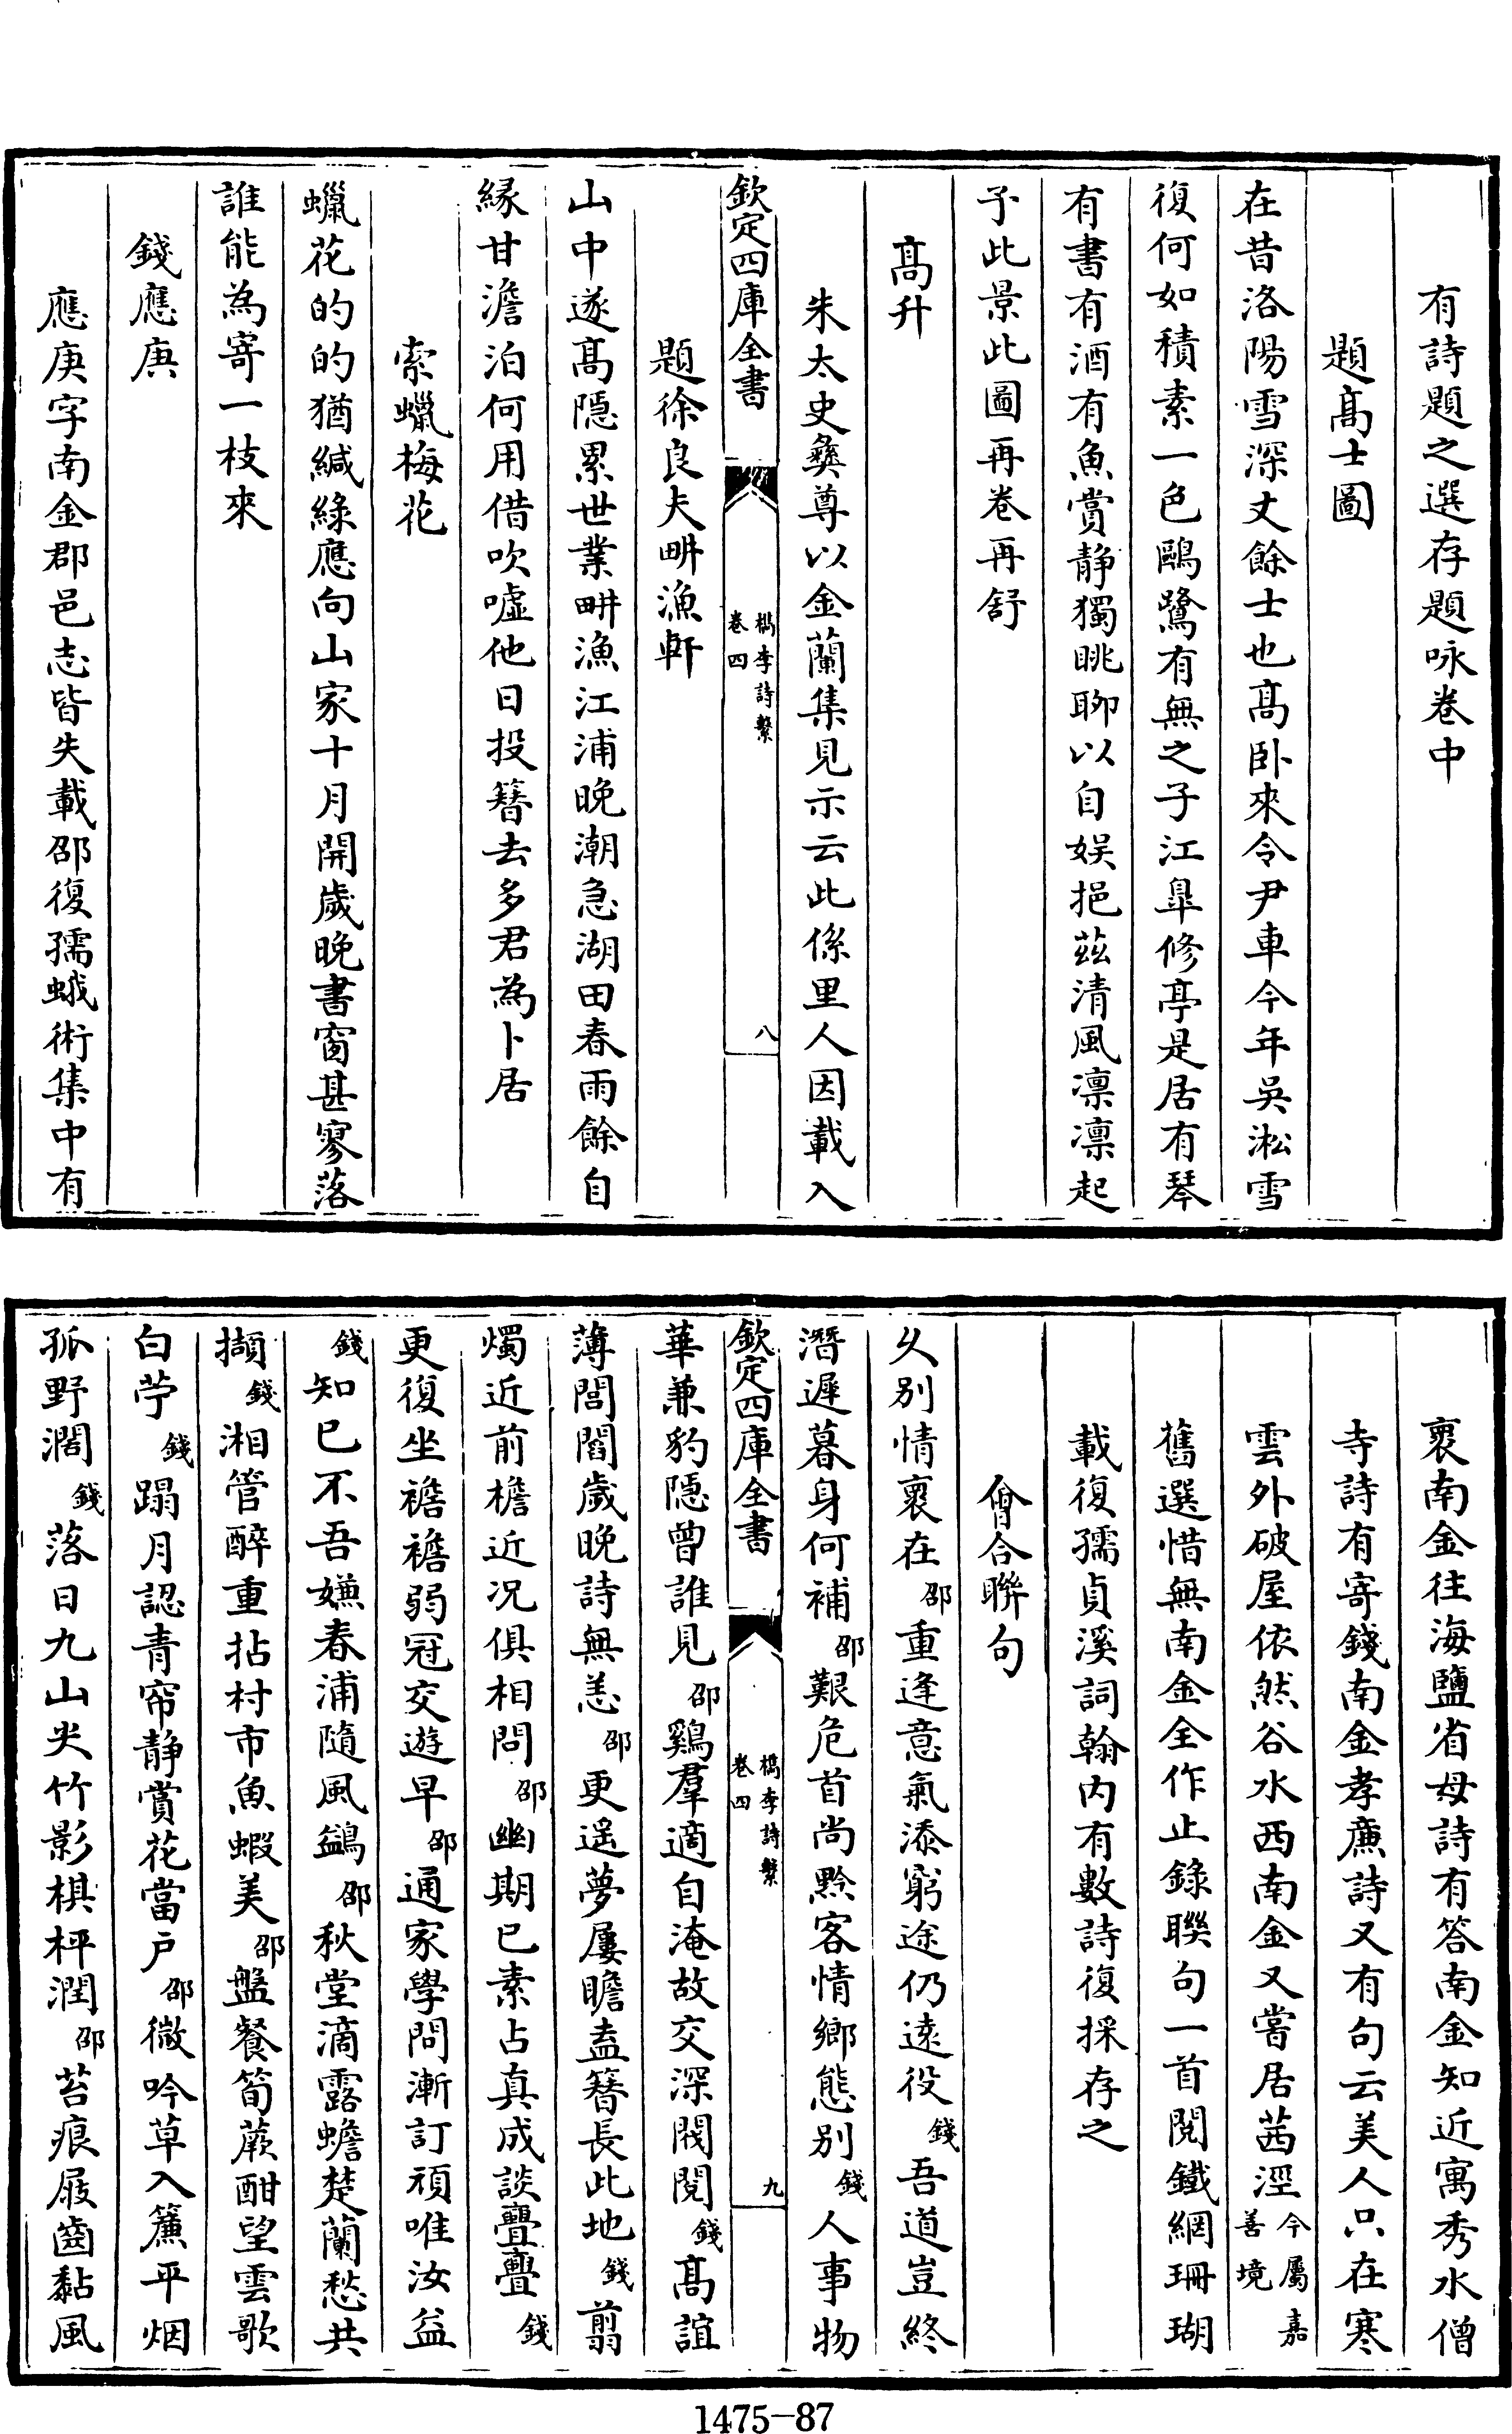 有詩題之選存題咏卷中
題髙士圖
在昔洛陽雪深丈餘士也髙卧來令尹車今年吳淞雪
復何如積素一色鷗鷺有無之子江臯修亭是居有琴
有書有酒有魚賞静獨眺聊以自娱挹茲清風凛凛起
予此景此圖再卷再舒
髙升
朱太史彝尊以金蘭集見示云此係里人因載入
欽定四庫全書
檇李詩繫
卷四
八
題徐良夫畊漁軒
山中遂髙隱累世業畊漁江浦晚潮急湖田春雨餘自
縁甘澹泊何用借吹嘘他日投簪去多君為卜居
索蠟梅花
蠟花的的猶緘緑應向山家十月開歲晚書窗甚寥落
誰能為寄一枝來
錢應庚
應庚字南金郡邑志皆失載邵復孺蛾術集中有
褱南金往海鹽省母詩有答南金知近寓秀水僧
寺詩有寄錢南金孝亷詩又有句云美人只在寒
雲外破屋依然谷水西南金又嘗居茜涇今屬嘉善境
舊選惜無南金全作止錄聯句一首閲鐵網珊瑚
載復孺貞溪詞翰内有數詩復採存之
會合聯句
久别情褱在邵重逢意氣添窮途仍逺役錢吾道豈終
潛遲暮身何補邵艱危首尚黔客情鄉態别錢人事物
欽定四庫全書
檇李詩繫
卷四
九
華兼豹隱曾誰見邵鷄羣適自淹故交深閥閲錢髙誼
薄閭閻歲晚詩無恙邵更遥夢屢瞻盍簪長此地錢翦
燭近前檐近况俱相問邵幽期已素占真成談亹亹錢
更復坐襜襜弱冠交遊早邵通家學問漸訂頑唯汝益
錢知已不吾嫌春浦隨風鷁邵秋堂滴露蟾楚蘭愁共
擷錢湘管醉重拈村市魚蝦美邵盤餐筍蕨酣望雲歌
白苧錢蹋月認青帘静賞花當户邵微吟草入簾平烟
孤野濶錢落日九山尖竹影棋枰潤邵苔痕屐齒黏風
1475-87